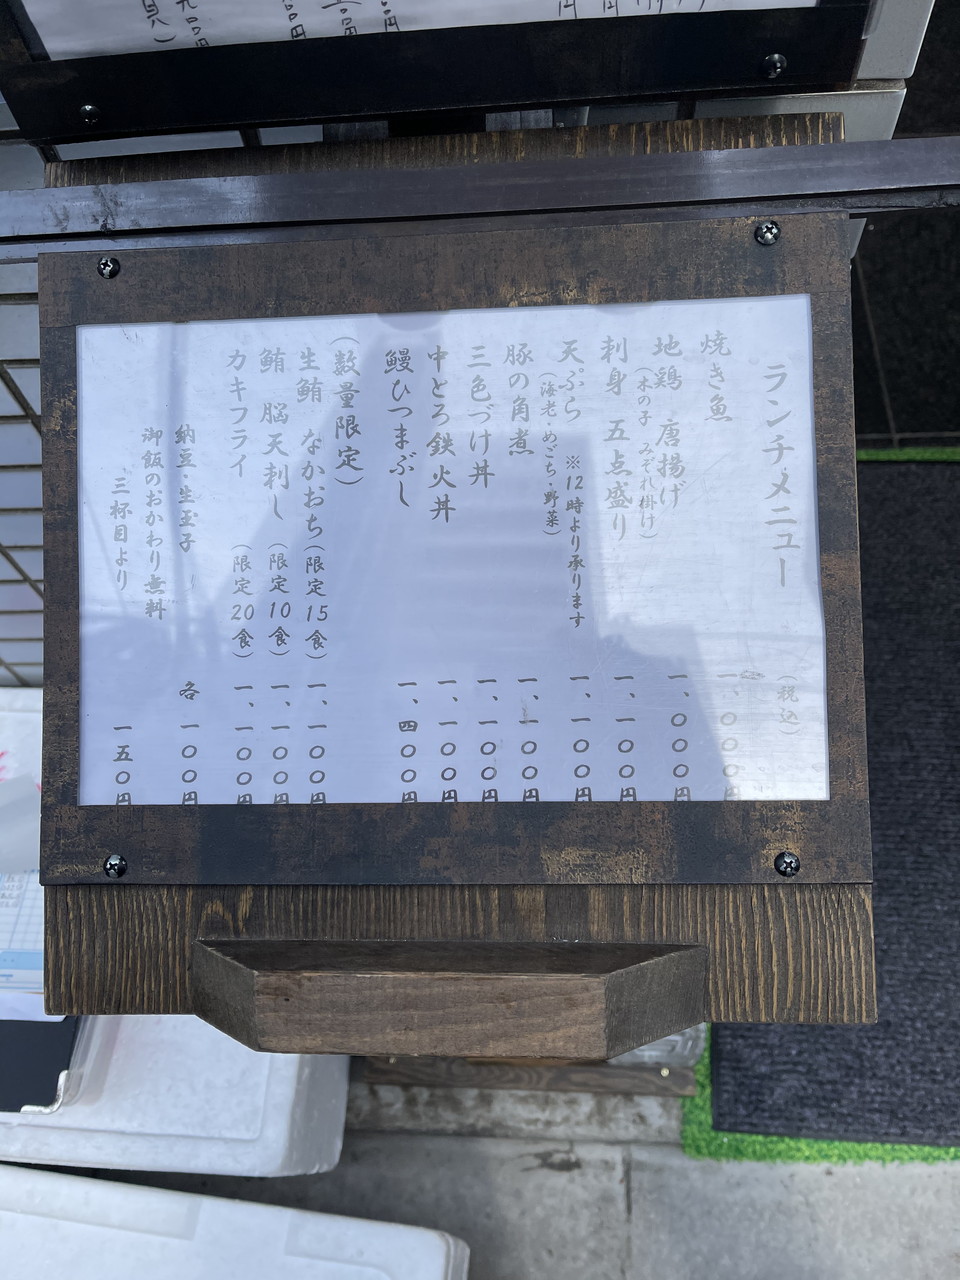 ランチメニュー (税込)
焼き魚 一、〇〇〇円
地鶏 唐揚げ 一、〇〇〇円
(木の子 みぞれ掛け)
刺身 五点盛り 一、一〇〇円
天ぷら ※12時より承ります 一、一〇〇円
(海老・めごち・野菜)
豚の角煮 一、一〇〇円
三色づけ丼 一、一〇〇円
中とろ鉄火丼 一、一〇〇円
鰻ひつまぶし 一、四〇〇円
(数量限定)
生鮪 なかおち(限定15食) 一、一〇〇円
鮪 脳天刺し(限定10食) 一、一〇〇円
カキフライ (限定20食) 一、一〇〇円
納豆・生玉子 各 一〇〇円
御飯のおかわり無料
三杯目より 一五〇円